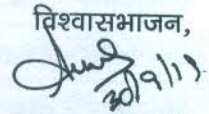 विश्वासभाजन,
30/9/11